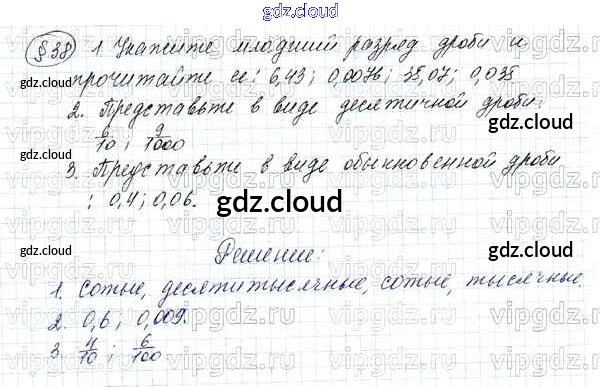 gdz.cloud
§38 1. Укажите младший разряд дроби и
прочитайте ее: 6,43; 0,0076; 38,07; 0,038
2. Представьте в виде десятичной дроби:
6/10; 9/1000
3. Представьте в виде обыкновенной дроби
: 0,4; 0,06.
gdz.cloud
Решение:
1. Сотые, десятитысячные, сотые, тысячные.
2. 0,6; 0,009.
3. 4/10; 6/100